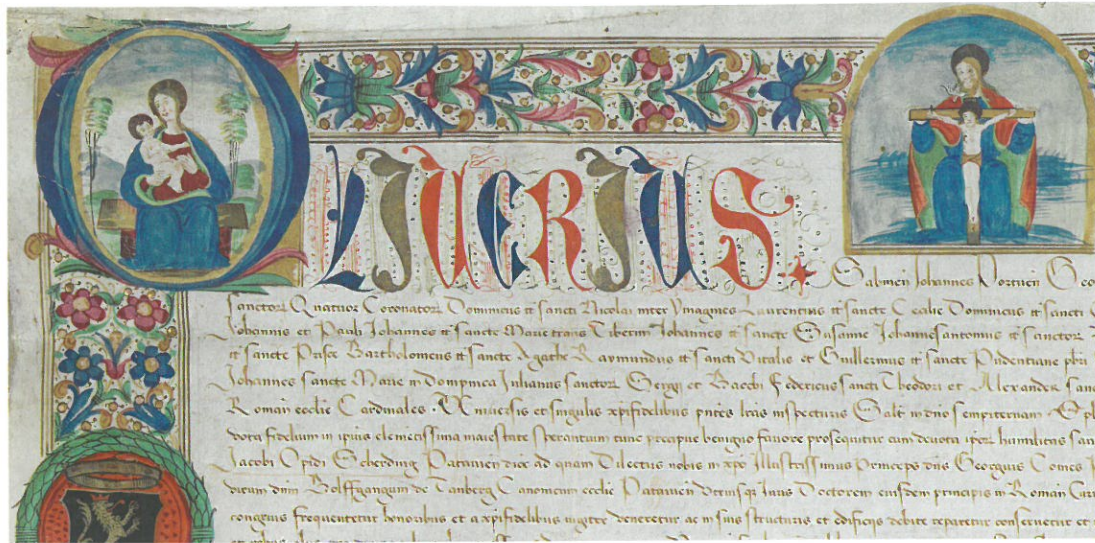 OLIVERIUS
Sabinen Johannes Portuen Geor
sanctorum Quatuor Coronatorum Dominicus tt sancti Nicolai inter ymagines Laurentius tt sancte Cecilie Dominicus tt sancti
Johannis et Pauli Johannes tt sancte Marie trans Tiberim Johannes tt sancte Susanne Johannesantonius tt sanctorum
tt sancte Prisce Bartholomeus tt sancte Agathe Raymundus tt sancti Vitalis et Guillermus tt sancte Pudentiane pbri
Johannes sancte Marie in Dompnica Julianus sanctorum Sergij et Bacchi Federicus sancti Theodori et Alexander sanc
Roman ecclie Cardinales Universis et singulis xpifidelibus pntes lras inspecturis Salt in dno sempiternam Spl
vota fidelium in ipius clemetissima maiestate sperantium tunc precipue benigno favore prosequitur cum devota ipor humilitas san
Jacobi Opidi Scherding Patavien dioc ad quam Dilectus nobis in xpo Illustrissimus Princeps dns Georgius Comes
dictum dnm Wolffgangum de Tanberg Canonicum ecclie Patavien Utriusq Juris Doctorem eiusdem principis in Roman Curi
congruis frequentetur honoribus et a xpifidelibus iugiter veneretur ac in suis structuris et edificijs debite reparetur conservetur et